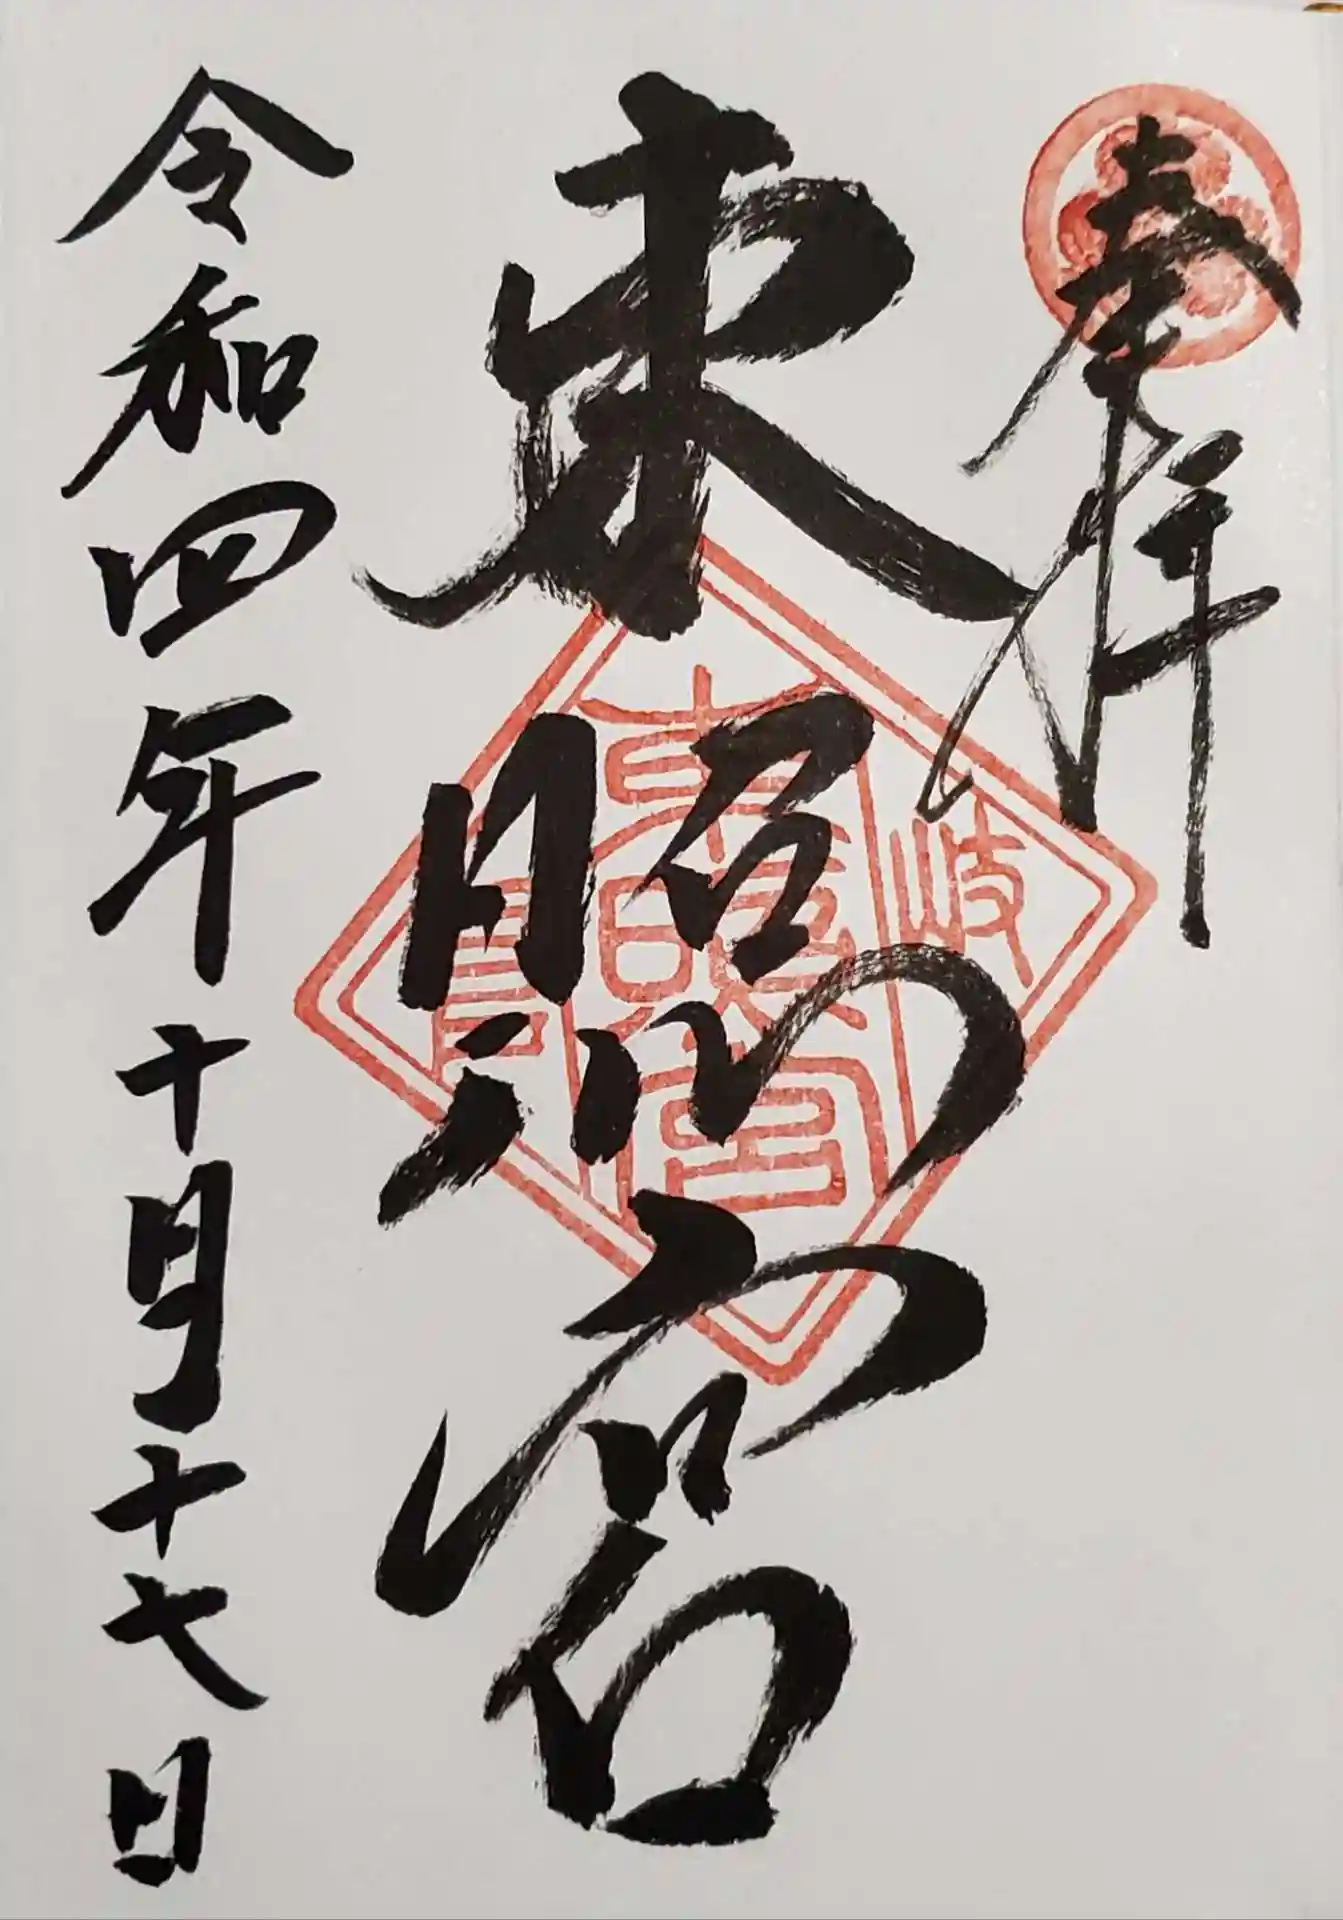 奉拝
東照宮
岐
東照宮
令和四年十月十七日